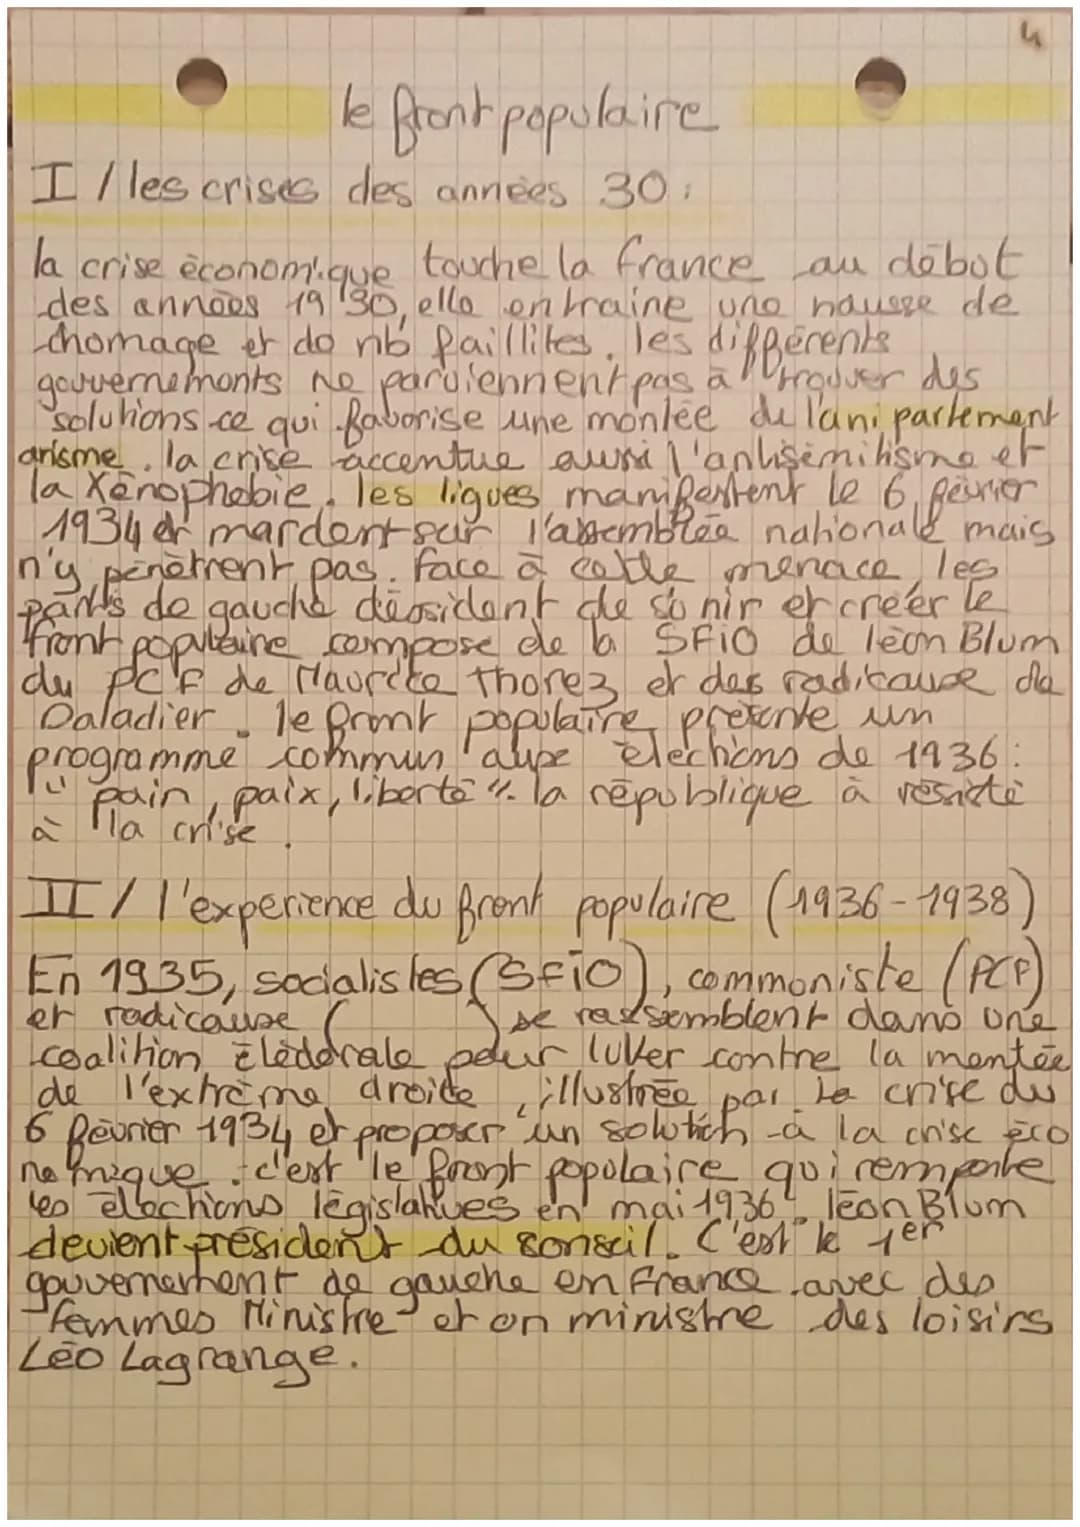 4
le front populaire
I / les crises des années 30 :
la crise économique touche la france au début
des années 1930, elle entraine une hausse de
chomage et de nb faillites. les différents
gouvernements ne parviennent pas à trouver des
solutions ce qui favorise une montée de l'ani parlement
arisme. la crise accentue aussi l'antisémitisme et
la Xénophobie. les ligues manifestent le 6 février
1934 et mardent sur l'assemblée nationale mais
n'y pénètrent pas. face à cette menace, les
partis de gauche déosident de s'unir et créer le
front populaire compose de la SFiO de léon Blum
du PCF de Maurice Thorez et des radicause de
Daladier. le front populaire présente un
programme commun aupe élections de 1936 :
" pain, paix, liberté ". la république à résisté
à la crise.
II / l'experience du front populaire (1936-1938)
En 1935, socialistes (SFiO), commoniste (PCF)
et radicause ( ) se rassemblent dans une
coalition élédorale pour lutter contre la montée
de l'extrême droite, illustrée par la crise du
6 février 1934 et proposer un solution à la crise éco
nomique : c'est le front populaire qui remporte
les élections législatives en mai 1936. léon Blum
devient président du conseil. C'est le 1er
gouvernement de gauche en France avec des
femmes Ministre et on ministre des loisirs
Léo Lagrange.